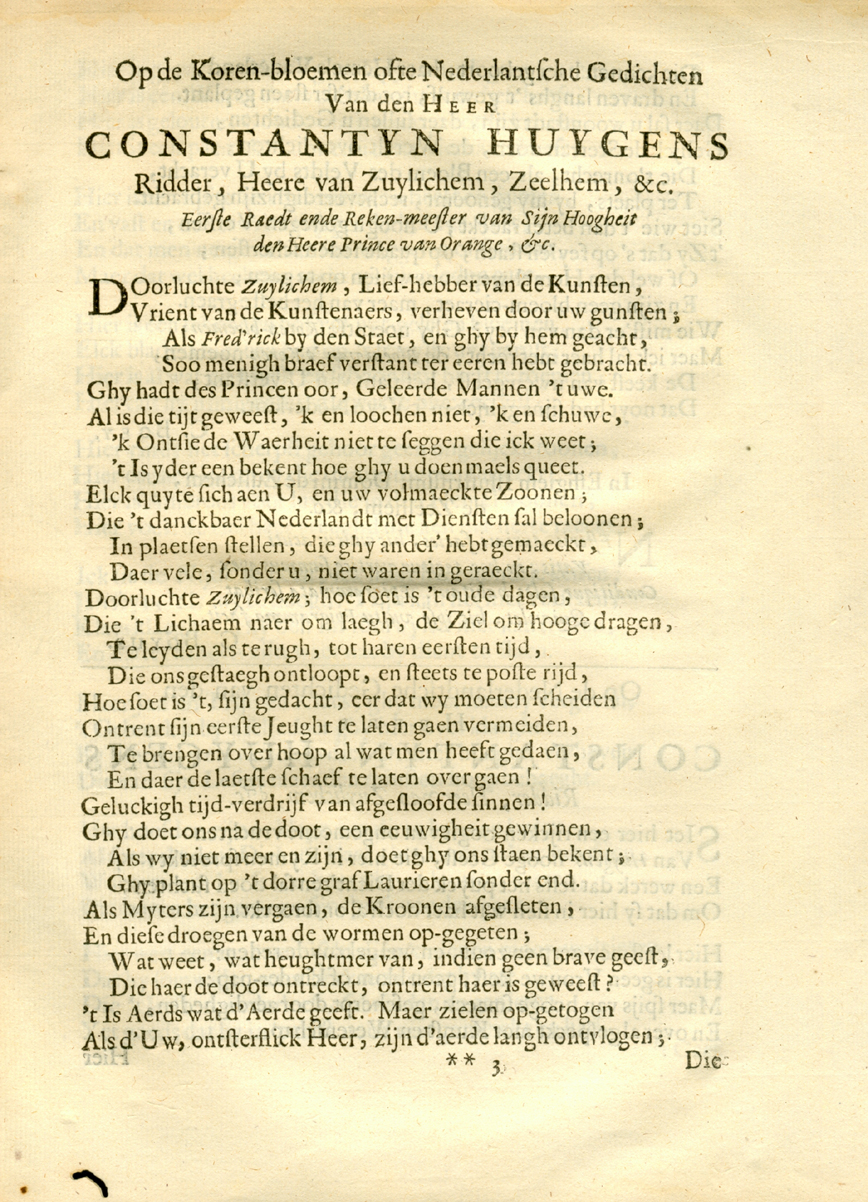 Op de Koren-bloemen ofte Nederlantſche Gedichten
Van den HEER
CONSTANTYN HUYGENS
Ridder, Heere van Zuylichem, Zeelhem, &c.
Eerſte Raedt ende Reken-meeſter van Sijn Hoogheit
den Heere Prince van Orange, &c.
DOorluchte Zuylichem, Lief-hebber van de Kunſten,
Vrient van de Kunſtenaers, verheven door uw gunſten;
Als Fred'rick by den Staet, en ghy by hem geacht,
Soo menigh braef verſtant ter eeren hebt gebracht.
Ghy hadt des Princen oor, Geleerde Mannen 't uwe.
Al is die tijt geweeſt, 'k en loochen niet, 'k en ſchuwe,
'k Ontſie de Waerheit niet te ſeggen die ick weet;
't Is yder een bekent hoe ghy u doenmaels queet.
Elck quyte ſich aen U, en uw volmaeckte Zoonen;
Die 't danckbaer Nederlandt met Dienſten ſal beloonen;
In plaetſen ſtellen, die ghy ander' hebt gemaeckt,
Daer vele, ſonder u, niet waren in geraeckt.
Doorluchte Zuylichem; hoe ſoet is 't oude dagen,
Die 't Lichaem naer om laegh, de Ziel om hooge dragen,
Te leyden als te rugh, tot haren eerſten tijd,
Die ons geſtaegh ontloopt, en ſteets te poſte rijd,
Hoe ſoet is 't, ſijn gedacht, eer dat wy moeten ſcheiden
Ontrent ſijn eerſte Jeught te laten gaen vermeiden,
Te brengen over hoop al wat men heeft gedaen,
En daer de laetſte ſchaef te laten over gaen!
Geluckigh tijd-verdrijf van afgeſloofde ſinnen!
Ghy doet ons na de doot, een eeuwigheit gewinnen,
Als wy niet meer en zijn, doet ghy ons ſtaen bekent;
Ghy plant op 't dorre graf Laurieren ſonder end.
Als Myters zijn vergaen, de Kroonen afgeſleten,
En dieſe droegen van de wormen op-gegeten;
Wat weet, wat heughtmer van, indien geen brave geeſt,
Die haer de doot ontreckt, ontrent haer is geweeſt?
't Is Aerds wat d'Aerde geeft. Maer zielen op-getogen
Als d'Uw, ontſterflick Heer, zijn d'aerde langh ontvlogen;
** 3 Die